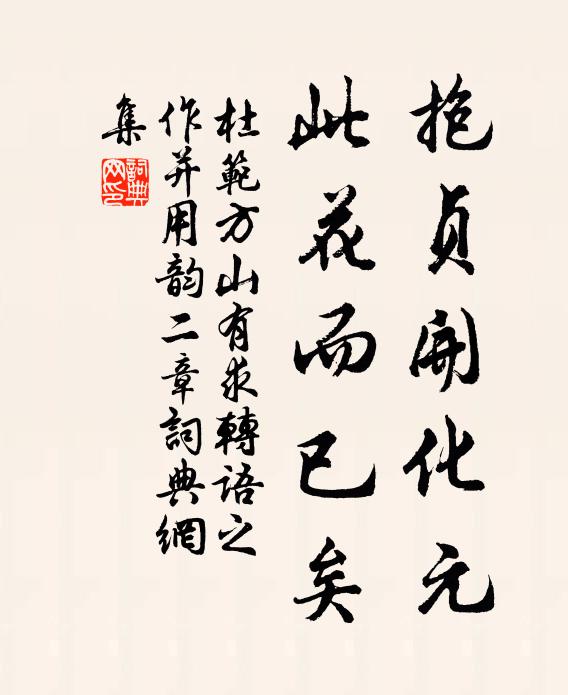 抱貞開化元
此花而已矣
杜範方山有求轉語之
作并用韵二章詞典網
集
詞典網印